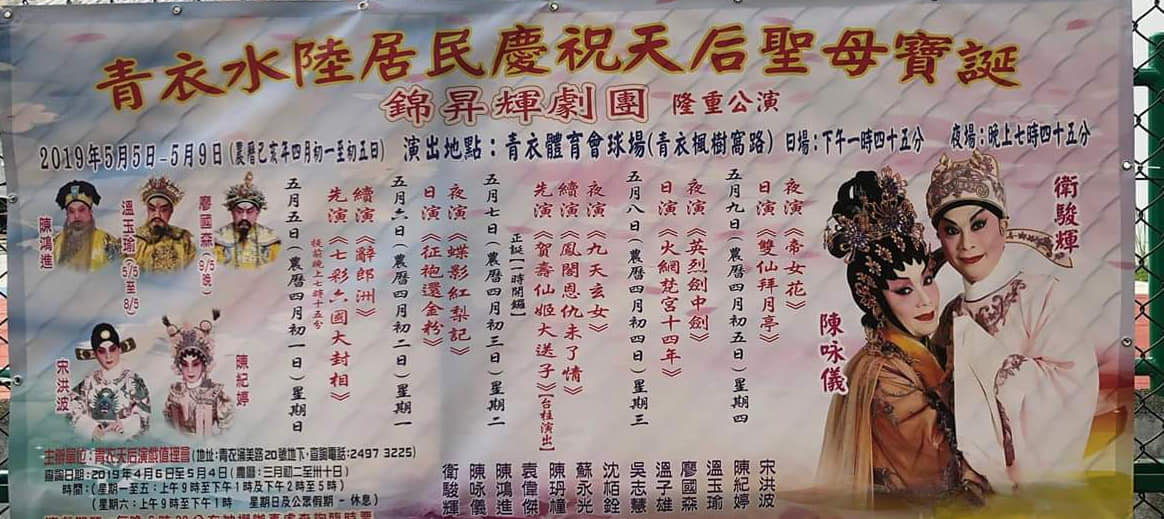 青衣水陸居民慶祝天后聖母寶誕
錦昇輝劇團 隆重公演
2019年5月5日-5月9日(農曆己亥年四月初一至初五日) 演出地點：青衣體育會球場(青衣楓樹窩路) 日場：下午一時四十五分 夜場：晚上七時四十五分
陳鴻進
溫玉瑜(5/5至8/5)
廖國森(9/5晚)
宋洪波
陳紀婷
五月五日(農曆四月初一日)星期日
先演《七彩六國大封相》
提前晚上七時十五分
續演《辭郎洲》
五月六日(農曆四月初二日)星期一
日演《征袍還金粉》
夜演《蝶影紅梨記》
五月七日(農曆四月初三日)星期二
正誕【一時開鑼】
先演《賀壽仙姬大送子》【台柱演出】
續演《鳳閣恩仇未了情》
夜演《九天玄女》
五月八日(農曆四月初四日)星期三
日演《火網梵宮十四年》
夜演《英烈劍中劍》
五月九日(農曆四月初五日)星期四
日演《雙仙拜月亭》
夜演《帝女花》
陳咏儀
衛駿輝
主辦單位：青衣天后演戲值理會(地址：青衣涌美路20號地下，查詢電話：2497 3225)
查詢日期：2019年4月6日至5月4日(農曆：三月初二至卅十日)
時間：(星期一至五：上午9時至下午1時及下午2時至5時)
(星期六：上午9時至下午1時 星期日及公眾假期 - 休息)
衛駿輝
陳咏儀
陳鴻進
袁偉傑
陳玬橦
蘇永光
沈栢銓
吳志慧
溫子雄
廖國森
溫玉瑜
陳紀婷
宋洪波